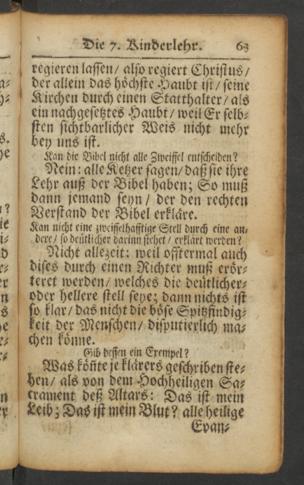 Die 7. Kinderlehr. 63
regieren lassen / also regiert Christus /
der allein das höchste Haubt ist / seine
Kirchen durch einen Statthalter / als
ein nachgesetztes Haubt / weil Er selb-
sten sichtbarlicher Weis nicht mehr
bey uns ist.
Kan die Bibel nicht alle Zweiffel entscheiden?
Nein: alle Ketzer sagen / daß sie ihre
Lehr auß der Bibel haben; So muß
dann jemand seyn / der den rechten
Verstand der Bibel erkläre.
Kan nicht eine zweiffelhafftige Stell durch eine an-
dere / so deütlicher darinn stehet / erklärt werden?
Nicht allezeit: weil offtermal auch
dises durch einen Richter muß erör-
teret werden / welches die deütlicher-
oder hellere stell seye; dann nichts ist
so klar / das nicht die böse Spitzfindig-
keit der Menschen / disputierlich ma-
chen könne.
Gib dessen ein Exempel?
Was könte je klärers geschriben ste-
hen / als von dem Hochheiligen Sa-
crament deß Altars: Das ist mein
Leib; Das ist mein Blut? alle heilige
Evan-